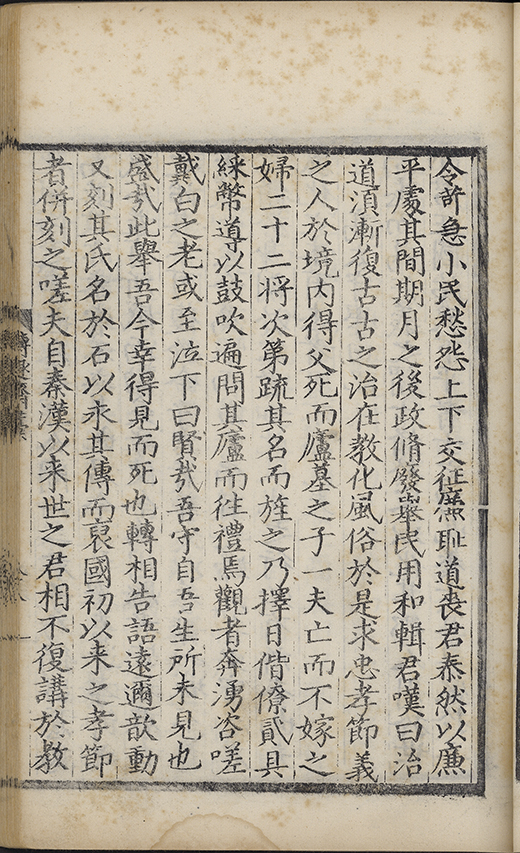 令訐急小民愁怨上下交征廉恥道喪君泰然以廉
平處其間期月之後政脩廢舉民用和輯君嘆曰治
道湏漸復古古之治在教化風俗於是求忠孝節義
之人於境內得父死而廬墓之子一夫亡而不嫁之
婦二十二將次第疏其名而旌之乃擇日偕僚貳具
綵幣導以鼓吹遍問其廬而往禮焉觀者奔湧咨嗟
戴白之老或至泣下曰賢㢤吾守自吾生所未見也
盛㢤此舉吾今幸得見而死也轉相告語遠邇歆動
又刻其氏名於石以永其傳而裒國初以来之孝節
者併刻之嗟夫自秦漢以来世之君相不復講於教